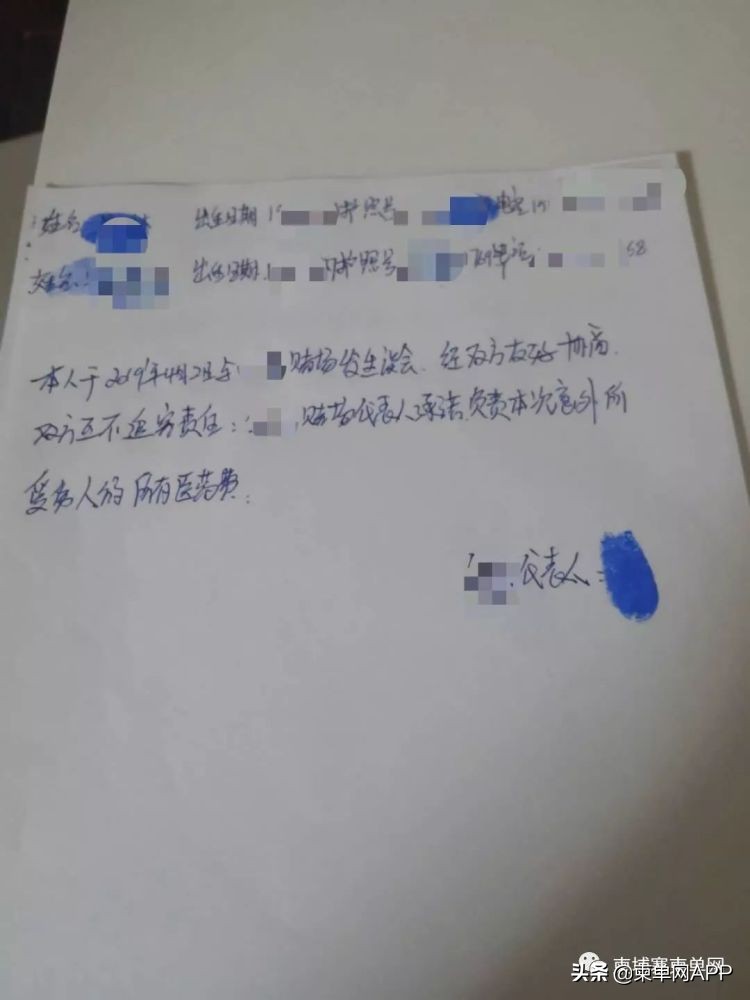 姓名 出生日期 1 护照号 电话
姓名: 出生日期: 护照号 电话: 58
本人于2019年4月2日与 赌场发生误会、经双方友好协商、
双方互不追究责任: 赌场代表人承诺负责本次意外所
受伤人的所有医药费.
代表人:
柬埔寨柬单网
头条 @柬单网APP